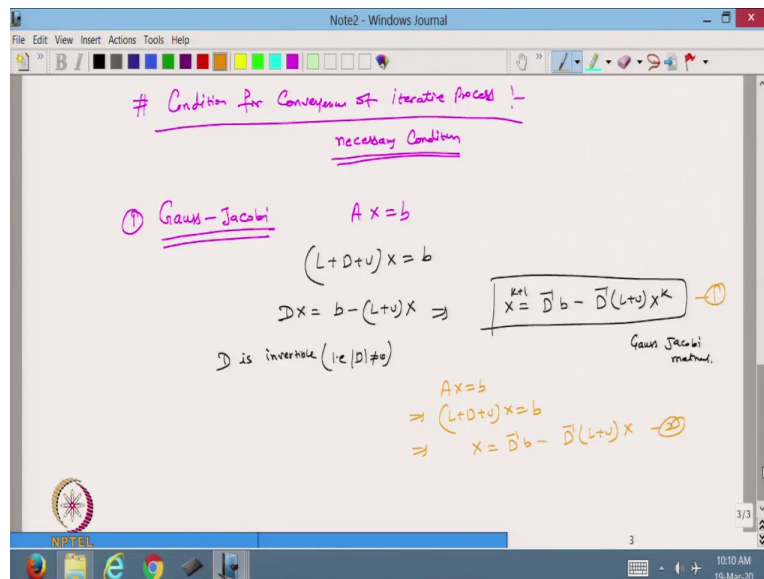 Note2 - Windows Journal
File Edit View Insert Actions Tools Help
# Condition for Convergence of iterative Process :-
necessary Condition
① Gauss-Jacobi Ax=b
(L+D+U)x=b
Dx = b-(L+U)x ⇒ x^{k+1} = D^{-1}b - D^{-1}(L+U)x^k -①
D is invertible (i.e |D|≠0) Gauss Jacobi
method.
Ax=b
⇒ (L+D+U)x=b
⇒ x = D^{-1}b - D^{-1}(L+U)x -②
NPTEL
3/3
3
10:10 AM
19-Mar-20